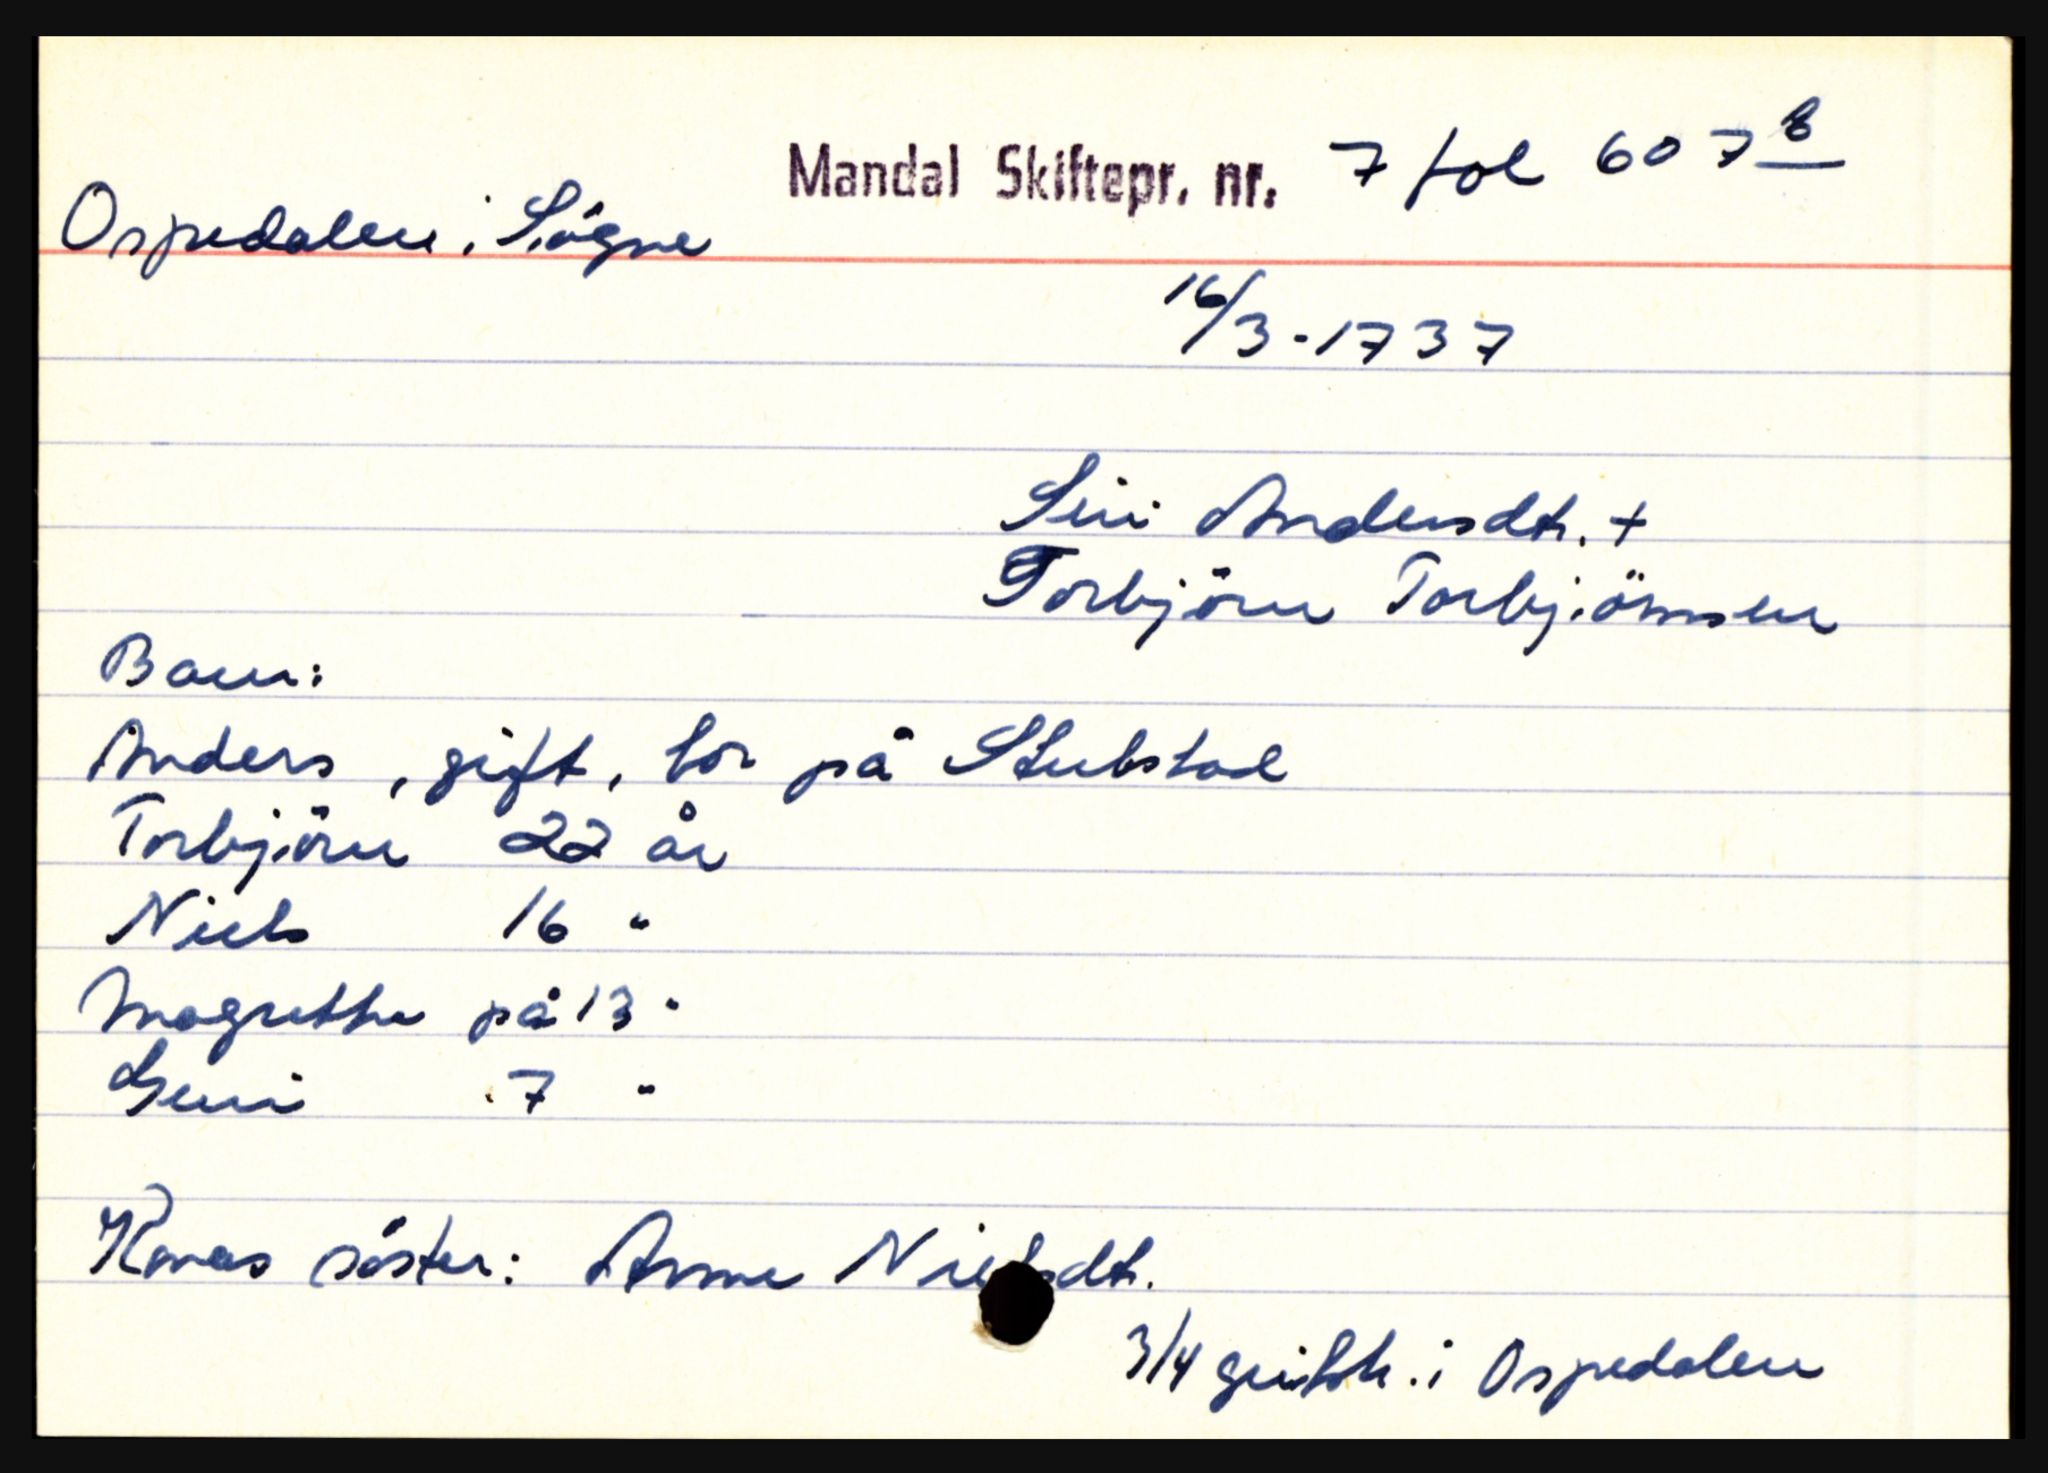 Mandal Skiftepr. nr. 7 fol 607 b
Ospedalen i Sögne
16/3-1737
Siri Andersdtr. +
Torbjörn Torbjörnsen
Barn:
Anders, gift, bor på Stubstad
Torbjörn 22 år
Niels 16 "
Magrethe på 13 "
Guri 7 "
Konas söster: Anne Nielsdtr.
3/4 grisbh. i Ospedalen